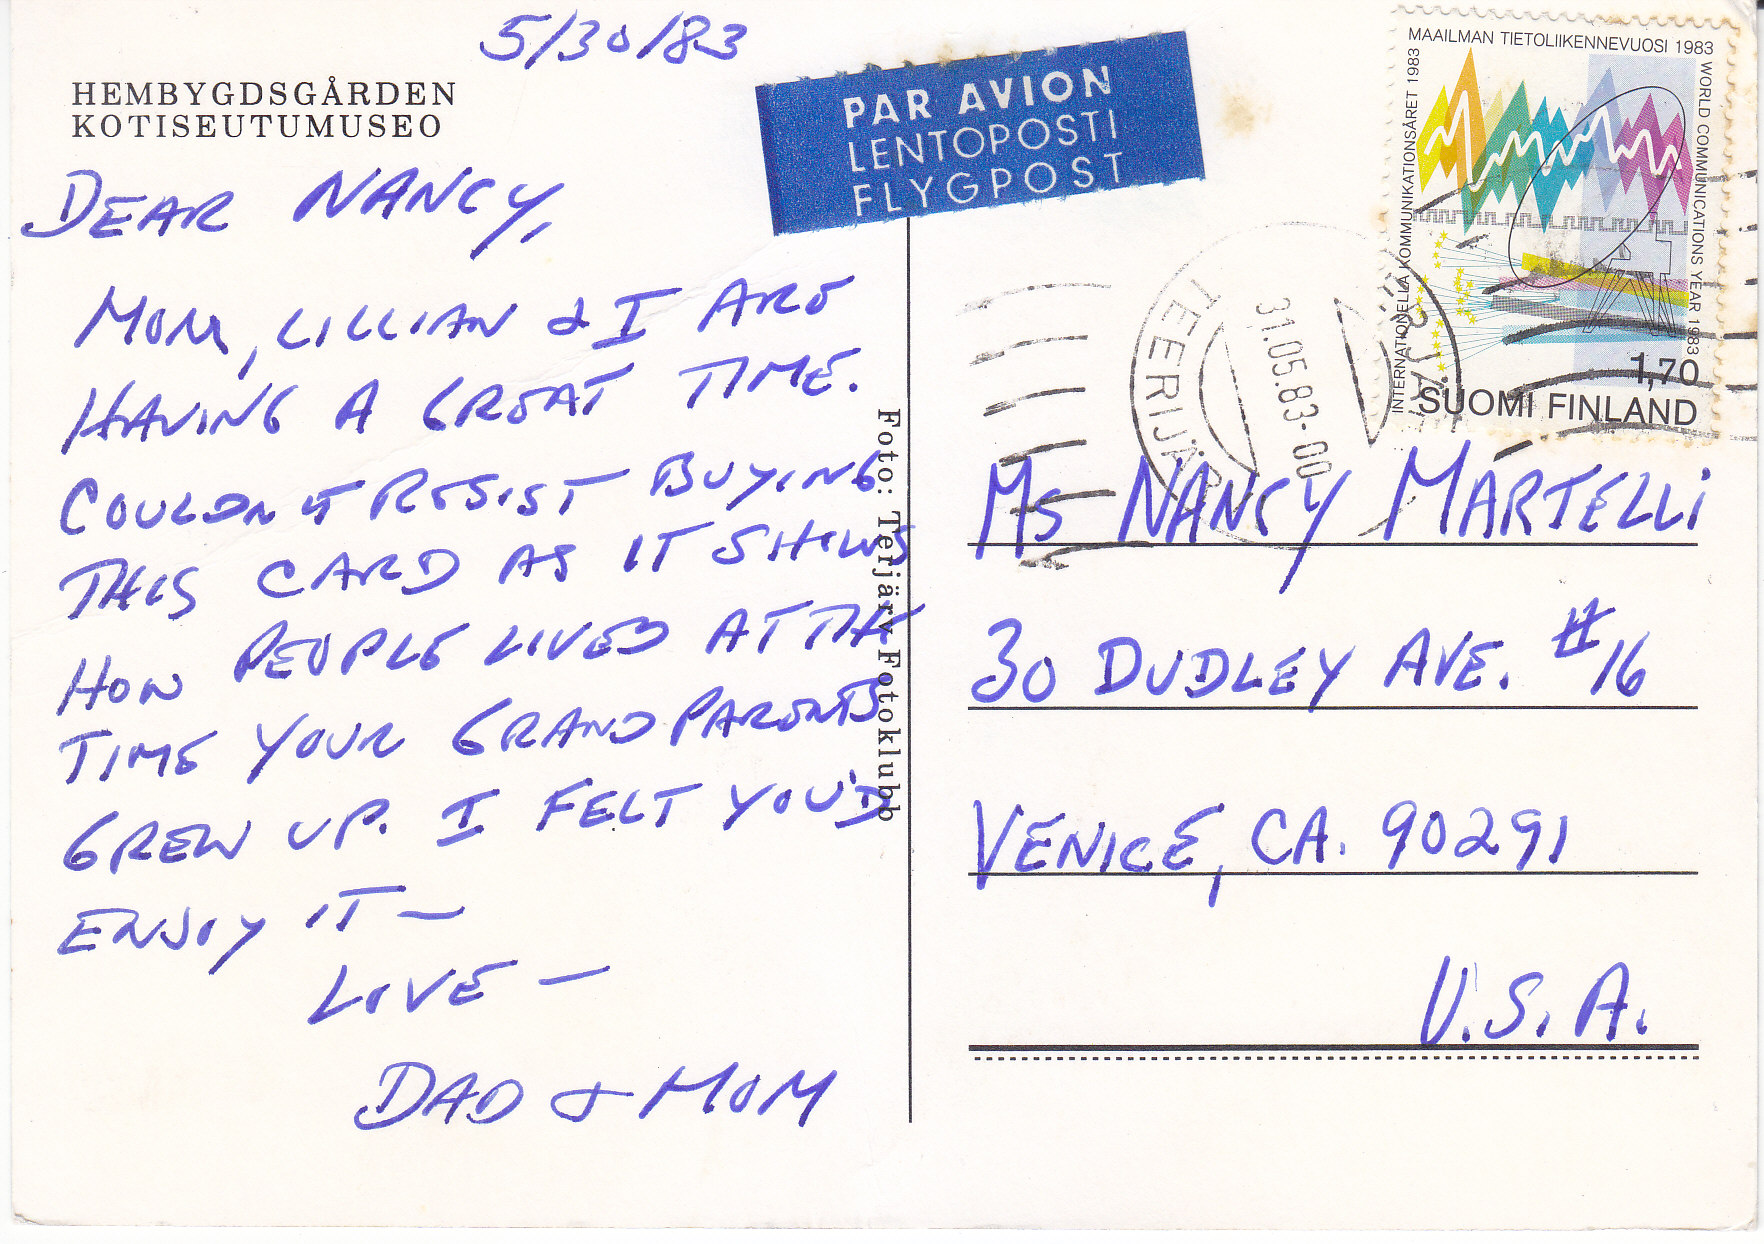 5/30/83
HEMBYGDSGÅRDEN
KOTISEUTUMUSEO
DEAR NANCY,
MOM, LILLIAN & I ARE
HAVING A GREAT TIME.
COULDN'T RESIST BUYING
THIS CARD AS IT SHOWS
HOW PEOPLE LIVED AT THE
TIME YOUR GRANDPARENTS
GREW UP. I FELT YOU'D
ENJOY IT —
LOVE —
DAD & MOM
Foto: Terjärv Fotoklubb
PAR AVION
LENTOPOSTI
FLYGPOST
MAAILMAN TIETOLIIKENNEVUOSI 1983
INTERNATIONELLA KOMMUNIKATIONSÅRET 1983
WORLD COMMUNICATIONS YEAR 1983
1,70
SUOMI FINLAND
TEERIJÄRVI
31.05.83-00
MS NANCY MARTELLI
30 DUDLEY AVE. #16
VENICE, CA. 90291
U.S.A.